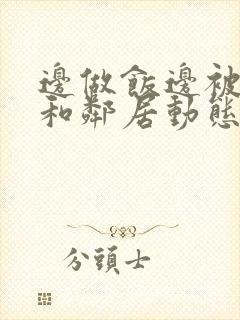 邊做飯邊被
和鄰居動態
分頭士